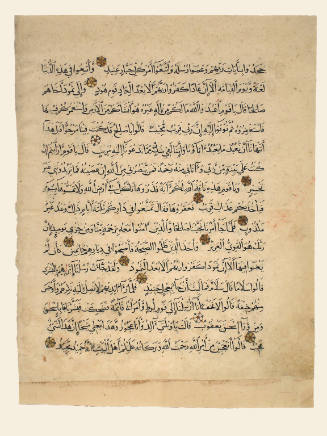 جحدوا بايات ربهم وعصوا رسله واتبعوا امر كل جبار عنيد واتبعوا في هذه الدنيا
لعنة ويوم القيامة الا ان عادا كفروا ربهم الا بعدا لعاد قوم هود والى ثمود اخاهم
صالحا قال يا قوم اعبدوا الله ما لكم من اله غيره هو انشاكم من الارض واستعمركم فيها
فاستغفروه ثم توبوا اليه ان ربي قريب مجيب قالوا يا صالح قد كنت فينا مرجوا قبل هذا
اتنهانا ان نعبد ما يعبد اباؤنا واننا لفي شك مما تدعونا اليه مريب قال يا قوم ارايتم ان
كنت على بينة من ربي واتاني منه رحمة فمن ينصرني من الله ان عصيته فما تزيدونني غير
تخسير ويا قوم هذه ناقة الله لكم اية فذروها تاكل في ارض الله ولا تمسوها بسوء
فياخذكم عذاب قريب فعقروها فقال تمتعوا في داركم ثلاثة ايام ذلك وعد غير
مكذوب فلما جاء امرنا نجينا صالحا والذين امنوا معه برحمة منا ومن خزي يومئذ ان
ربك هو القوي العزيز واخذ الذين ظلموا الصيحة فاصبحوا في ديارهم جاثمين كان لم
يغنوا فيها الا ان ثمود كفروا ربهم الا بعدا لثمود ولقد جاءت رسلنا ابراهيم بالبشرى
قالوا سلاما قال سلام فما لبث ان جاء بعجل حنيذ فلما راى ايديهم لا تصل اليه نكرهم واوجس
منهم خيفة قالوا لا تخف انا ارسلنا الى قوم لوط وامراته قائمة فضحكت فبشرناها باسحق
ومن وراء اسحق يعقوب قالت يا ويلتى االد وانا عجوز وهذا بعلي شيخا ان هذا لشيء
عجيب قالوا اتعجبين من امر الله رحمت الله وبركاته عليكم اهل البيت انه حميد مجيد